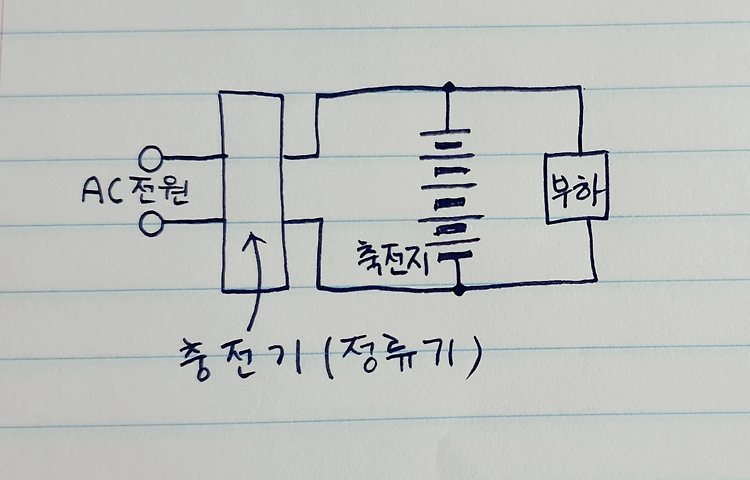 AC전원
부하
축전지
충전기(정류기)